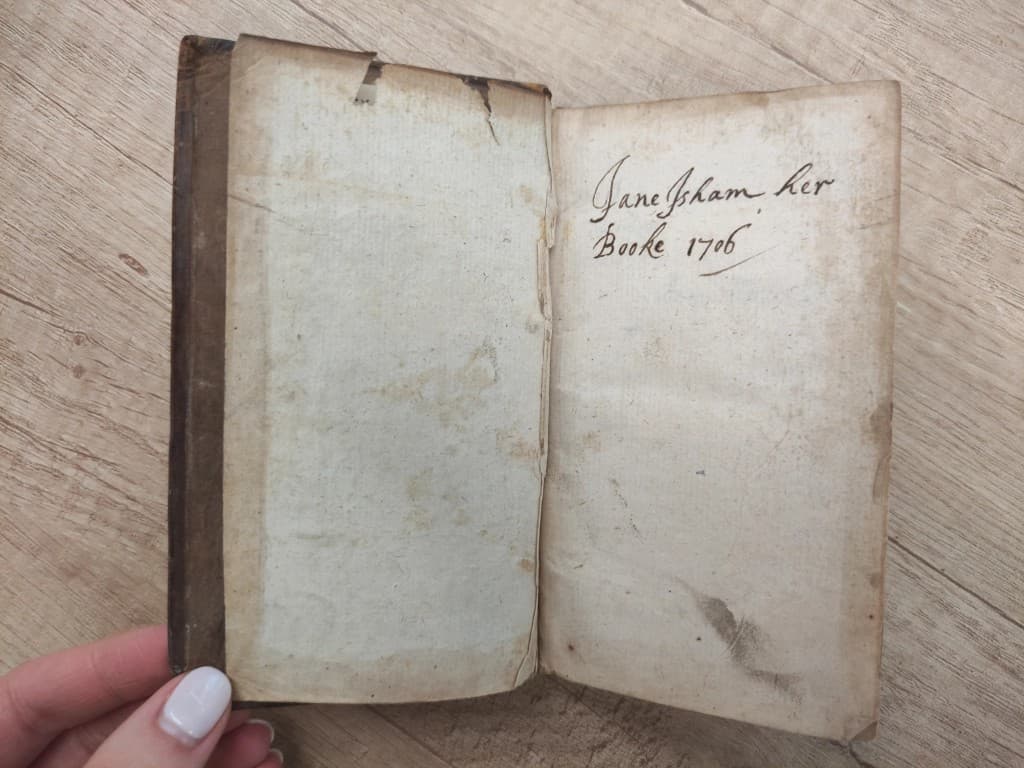 Jane Isham her
Booke 1706